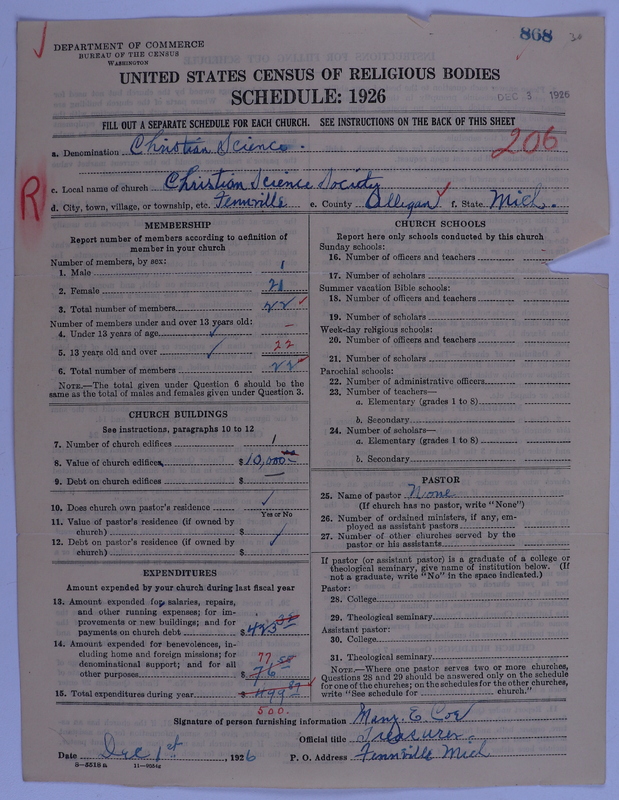 868
DEPARTMENT OF COMMERCE
BUREAU OF THE CENSUS
WASHINGTON
UNITED STATES CENSUS OF RELIGIOUS BODIES
SCHEDULE: 1926
DEC 3 1926
FILL OUT A SEPARATE SCHEDULE FOR EACH CHURCH. SEE INSTRUCTIONS ON THE BACK OF THIS SHEET
206
a. Denomination Christian Science.
R
c. Local name of church Christian Science Society
d. City, town, village, or township, etc. Fennville e. County Allegan f. State Mich.
MEMBERSHIP
Report number of members according to definition of
member in your church
Number of members, by sex:
1. Male 1
2. Female 21
3. Total number of members 22
Number of members under and over 13 years old:
4. Under 13 years of age —
5. 13 years old and over 22
6. Total number of members 22
NOTE.—The total given under Question 6 should be
same as the total of males and females given under Question 3.
CHURCH BUILDINGS
See instructions, paragraphs 10 to 12
7. Number of church edifices 1
8. Value of church edifices $10,000
9. Debt on church edifices $ —
10. Does church own pastor's residence
Yes or No
11. Value of pastor's residence (if owned by
church) $
12. Debt on pastor's residence (if owned by
church) $
EXPENDITURES
Amount expended by your church during last fiscal year
13. Amount expended for salaries, repairs,
and other running expenses; for im-
provements or new buildings; and for
payments on church debt $423
14. Amount expended for benevolences, in-
cluding home and foreign missions; for
denominational support; and for all
other purposes $76
77
15. Total expenditures during year $499
500.
CHURCH SCHOOLS
Report here only schools conducted by this church
Sunday schools:
16. Number of officers and teachers
17. Number of scholars
Summer vacation Bible schools:
18. Number of officers and teachers
19. Number of scholars
Week-day religious schools:
20. Number of officers and teachers
21. Number of scholars
Parochial schools:
22. Number of administrative officers
23. Number of teachers—
a. Elementary (grades 1 to 8)
b. Secondary
24. Number of scholars—
a. Elementary (grades 1 to 8)
b. Secondary
PASTOR
25. Name of pastor None
(If church has no pastor, write "None")
26. Number of ordained ministers, if any, em-
ployed as assistant pastors
27. Number of other churches served by the
pastor or his assistants
If pastor (or assistant pastor) is a graduate of a college or
theological seminary, give name of institution below. (If
not a graduate, write "No" in the space indicated.)
Pastor:
28. College
29. Theological seminary
Assistant pastor:
30. College
31. Theological seminary
NOTE.—Where one pastor serves two or more churches,
Questions 28 and 29 should be answered only on the schedule
for one of the churches; on the schedules for the other churches,
write "See schedule for ________ church."
Signature of person furnishing information Mary E Coe
Official title Treasurer.
Date Dec 1st, 1926 P. O. Address Fennville Mich
8-5518a 11-9354